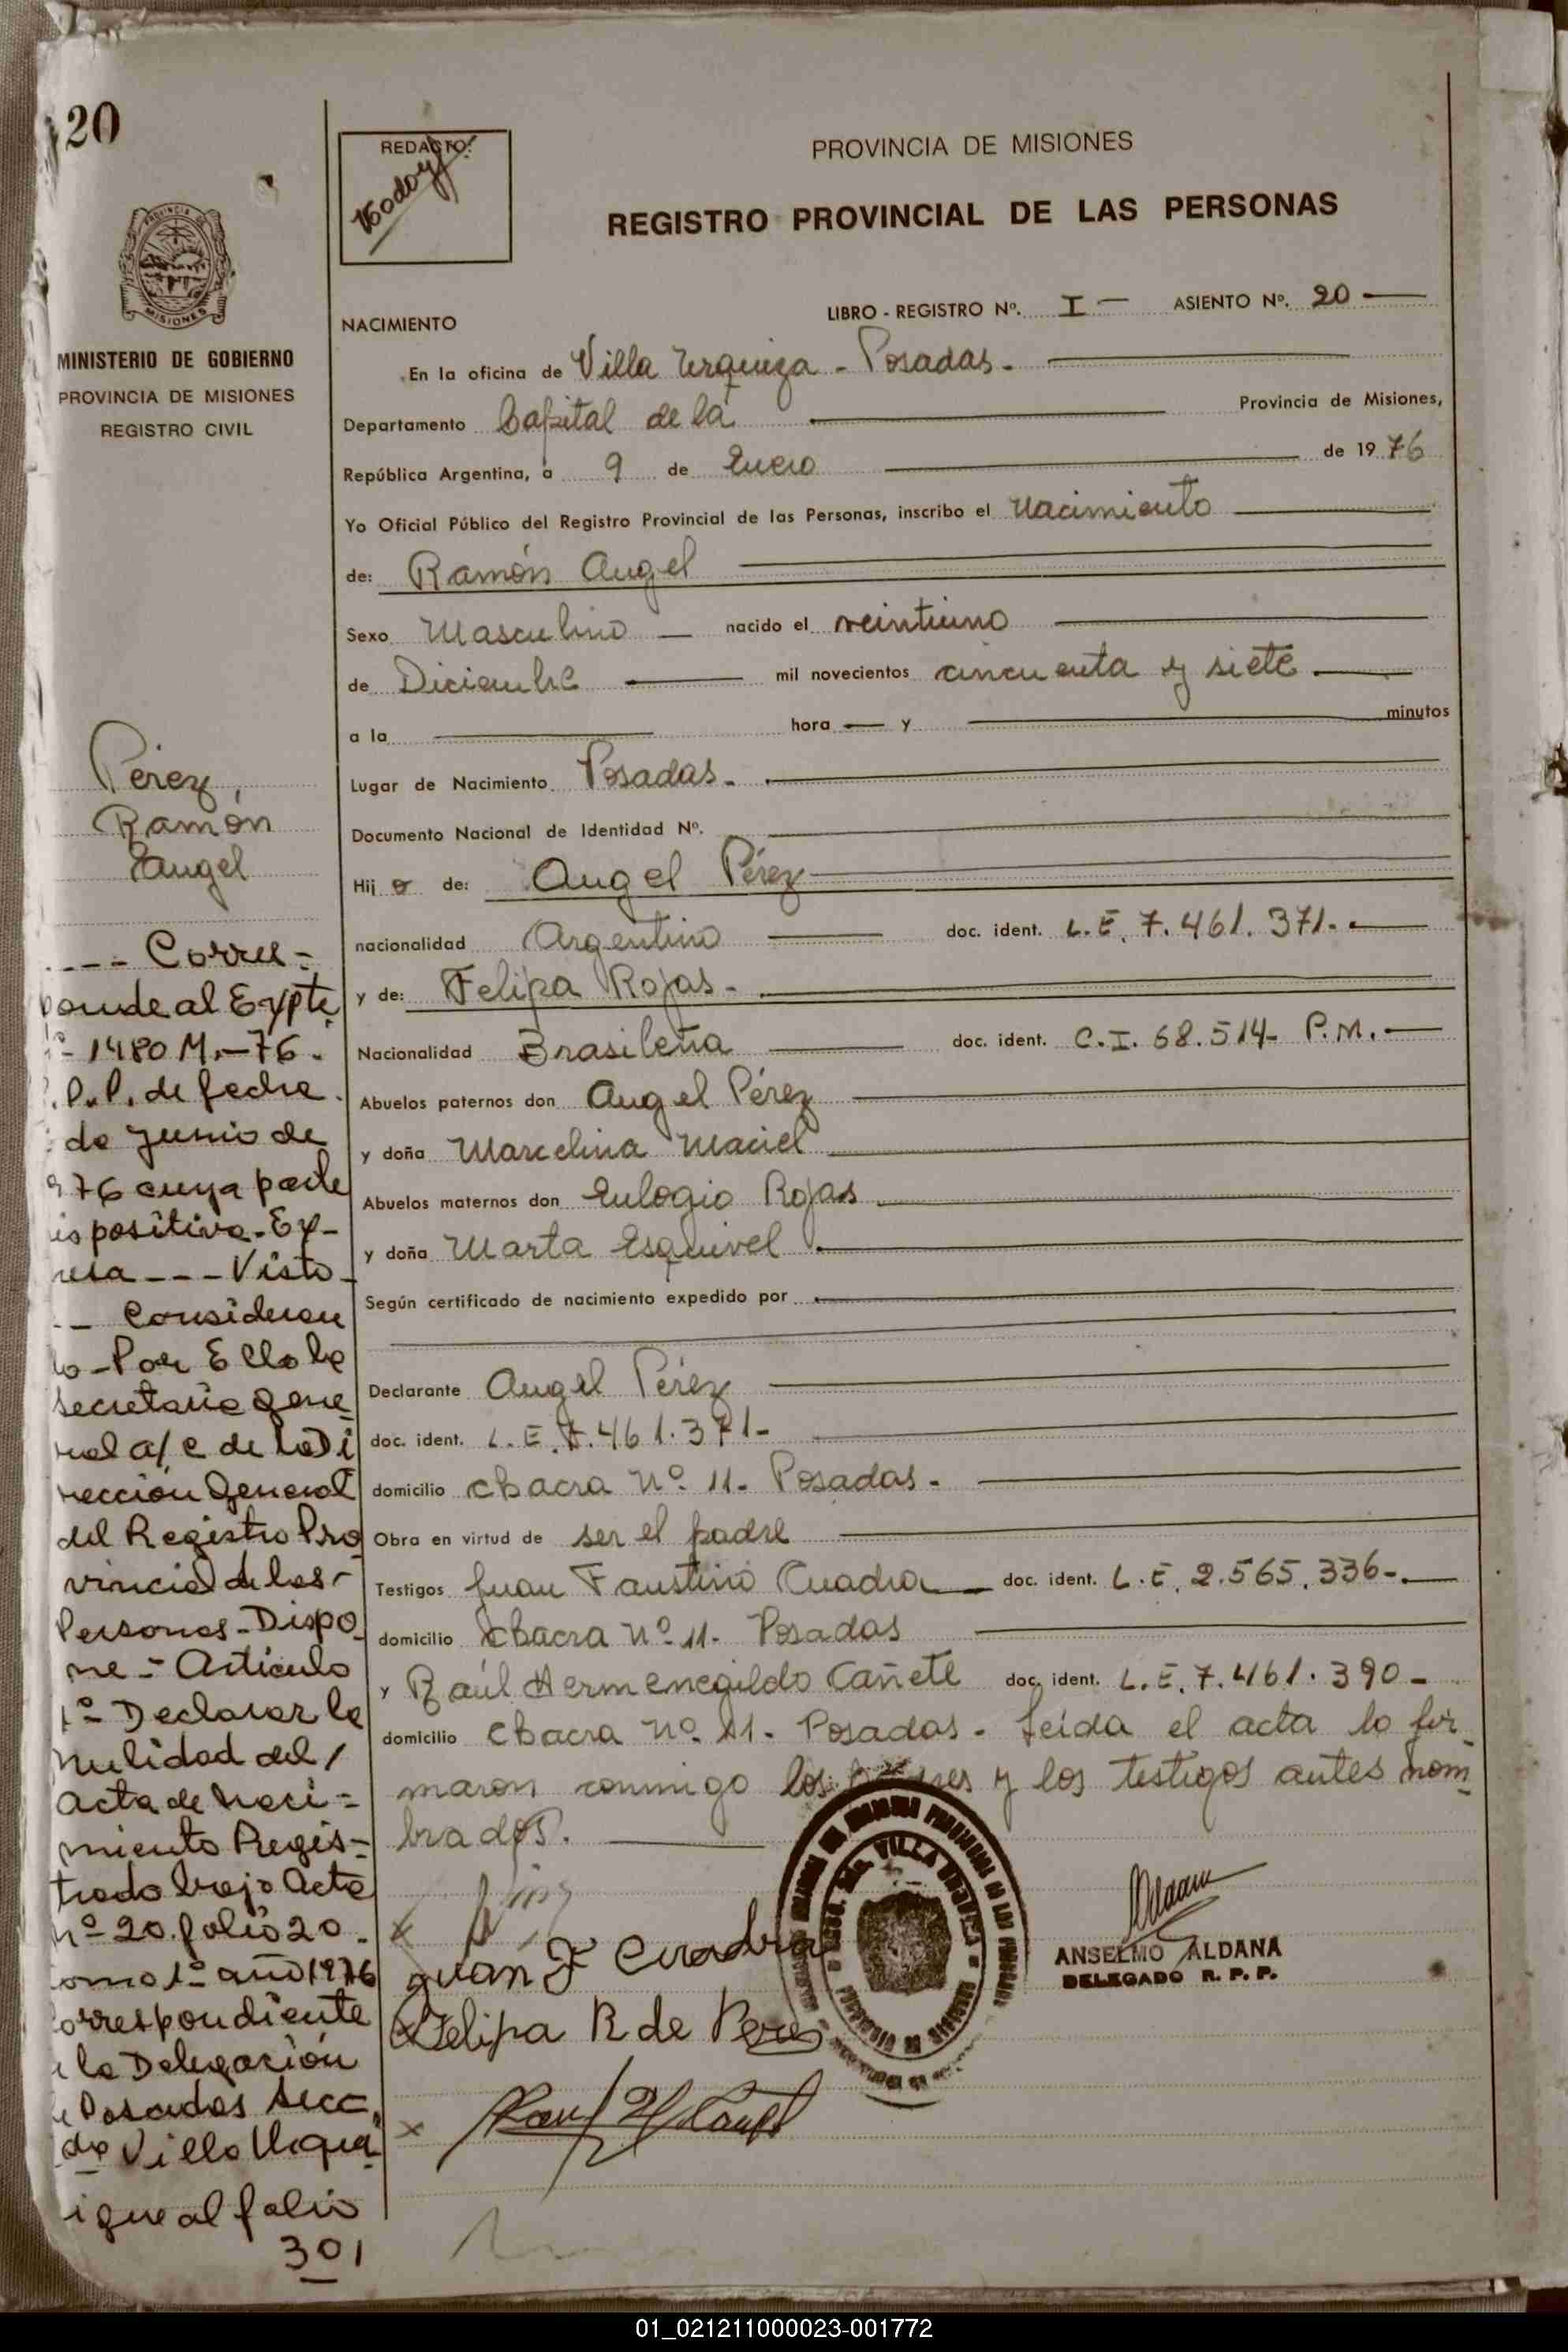 20
REDACTO:
Godoy
PROVINCIA DE MISIONES
REGISTRO PROVINCIAL DE LAS PERSONAS
MISIONES
MINISTERIO DE GOBIERNO
PROVINCIA DE MISIONES
REGISTRO CIVIL
NACIMIENTO
LIBRO - REGISTRO Nº. I - ASIENTO Nº. 20
En la oficina de Villa Urquiza - Posadas.
Departamento Capital de la Provincia de Misiones,
República Argentina, a 9 de Enero de 1976
Yo Oficial Público del Registro Provincial de las Personas, inscribo el Nacimiento
de: Ramón Angel
Sexo Masculino nacido el veintiuno
de Diciembre mil novecientos cincuenta y siete
a la hora y minutos
Lugar de Nacimiento Posadas.
Documento Nacional de Identidad Nº.
Hijo de: Angel Pérez
nacionalidad Argentino doc. ident. L.E. 7.461.371.
y de: Felipa Rojas.
Nacionalidad Brasileña doc. ident. C.I. 68.514- P.M.
Abuelos paternos don Angel Pérez
y doña Marcelina Maciel
Abuelos maternos don Eulogio Rojas
y doña Marta Esquivel
Según certificado de nacimiento expedido por
Declarante Angel Pérez
doc. ident. L.E. 7.461.371-
domicilio chacra Nº 11- Posadas.
Obra en virtud de ser el padre
Testigos Juan Faustino Cuadra doc. ident. L.E. 2.565.336-.
domicilio chacra Nº 11- Posadas
y Raúl Hermenegildo Cañete doc. ident. L.E. 7.461.390-
domicilio Chacra Nº 11- Posadas- Leída el acta lo fir-
maron conmigo los y los testigos antes nom-
brados.
Juan F Cuadra
Felipa R de Perez
VILLA URQUIZA
ANSELMO ALDANA
DELEGADO R. P. P.
Pérez,
Ramón
Angel
---- Corres-
ponde al Expte.
1480 M.-76.
.P.P. de fecha
de Junio de
976 cuya parte
ispositiva-Ex-
resa --- Visto-
-- Consideran
do-Por Ello la
Secretaria Gene
ral a/c de la Di
rección General
del Registro Pro
vincial de las-
Personas-Dispo
ne- Artículo
1º- Declarar la
nulidad del/
Acta de Naci-
miento Regis-
trado bajo Acta
nº 20 folio 20.
omo 1º año 1976
orrespondiente
la Delegación
e Posadas Secc.
da Villa Urqui
igue al folio
301
01_021211000023-001772